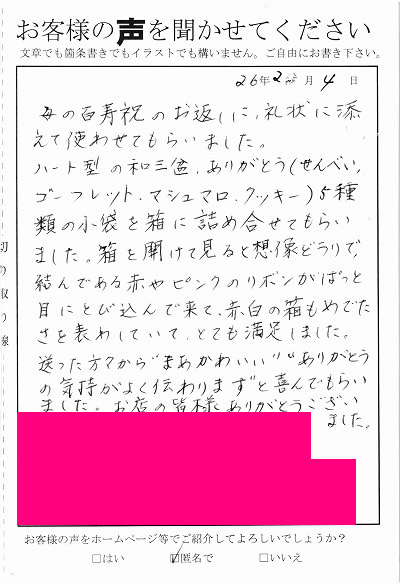 お客様の声を聞かせてください
文章でも箇条書きでもイラストでも構いません。ご自由にお書き下さい。
26年2月4日
母の百寿祝のお返しに、礼状に添
えて使わせてもらいました。
ハート型の和三盆、ありがとう(せんべい、
ゴーフレット、マシュマロ、クッキー)5種
類の小袋を箱に詰め合せてもらい
ました。箱を開けて見ると想像どうりで、
結んである赤やピンクのリボンがぱっと
目にとび込んで来て、赤白の箱もめでた
さを表わしていて、とても満足しました。
送った方々から"まあかわいい""ありがとう
の気持がよく伝わります"と喜んでもらい
ました。お店の皆様ありがとうござい
ました。
切り取り線
お客様の声をホームページ等でご紹介してよろしいでしょうか?
□はい ☑匿名で □いいえ